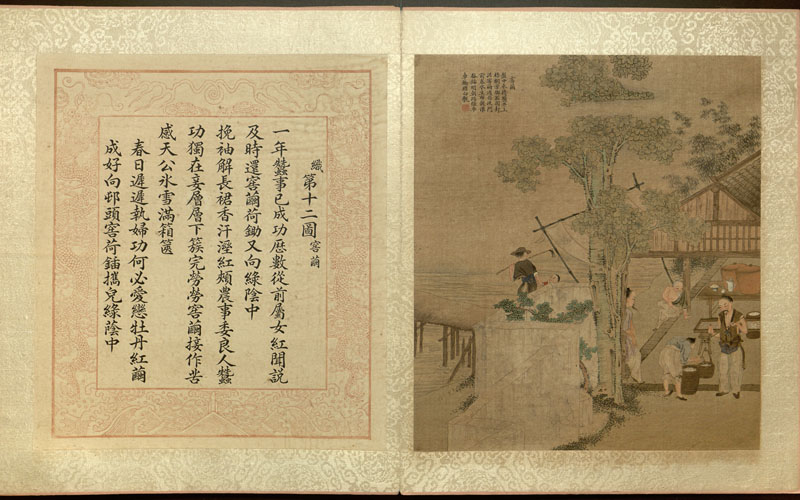 織第十二圖窖繭
一年蠶事已成功歷數從前屬女紅聞説
及時還窖繭荷鋤又向綠陰中
挽袖解長裙香汗溼紅頰農事委良人蠶
功獨在妾層層下簇完勞勞窖繭接作苦
感天公氷雪滿箱篋
春日遲遲執婦功何必愛戀牡丹紅繭
成好向邨頭窖荷鍤攜兒綠蔭中